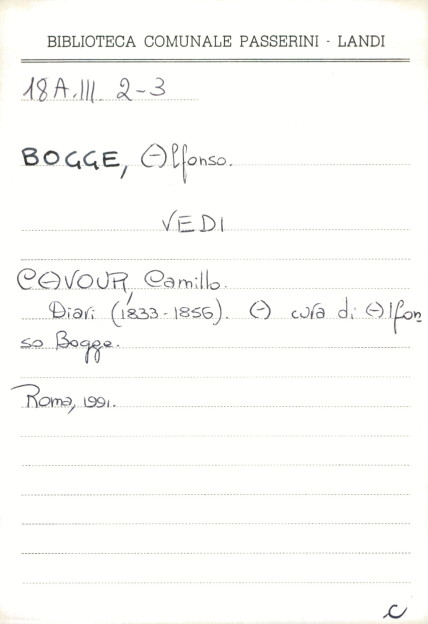 BIBLIOTECA COMUNALE PASSERINI - LANDI
18A.III 2-3
BOGGE, Alfonso.
VEDI
CAVOUR, Camillo.
Diari (1833-1856). A cura di Alfon
so Bogge.
Roma, 1991.
C